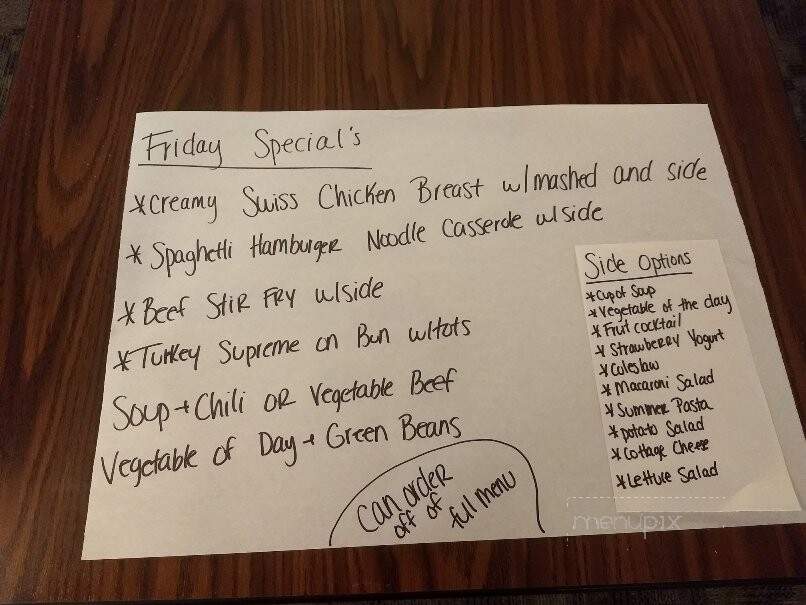 Friday Special's
*Creamy Swiss Chicken Breast w/mashed and side
* Spaghetti Hamburger Noodle Casserole w/side
* Beef Stir Fry w/side
*Turkey Supreme on Bun w/tots
Soup → Chili or Vegetable Beef
Vegetable of Day → Green Beans
Can order
off of
full menu
Side Options
*Cup of Soup
*Vegetable of the day
*Fruit cocktail
*Strawberry Yogurt
*Coleslaw
*Macaroni Salad
*Summer Pasta
*potato Salad
*Cottage Cheese
*Lettuce Salad
menupix